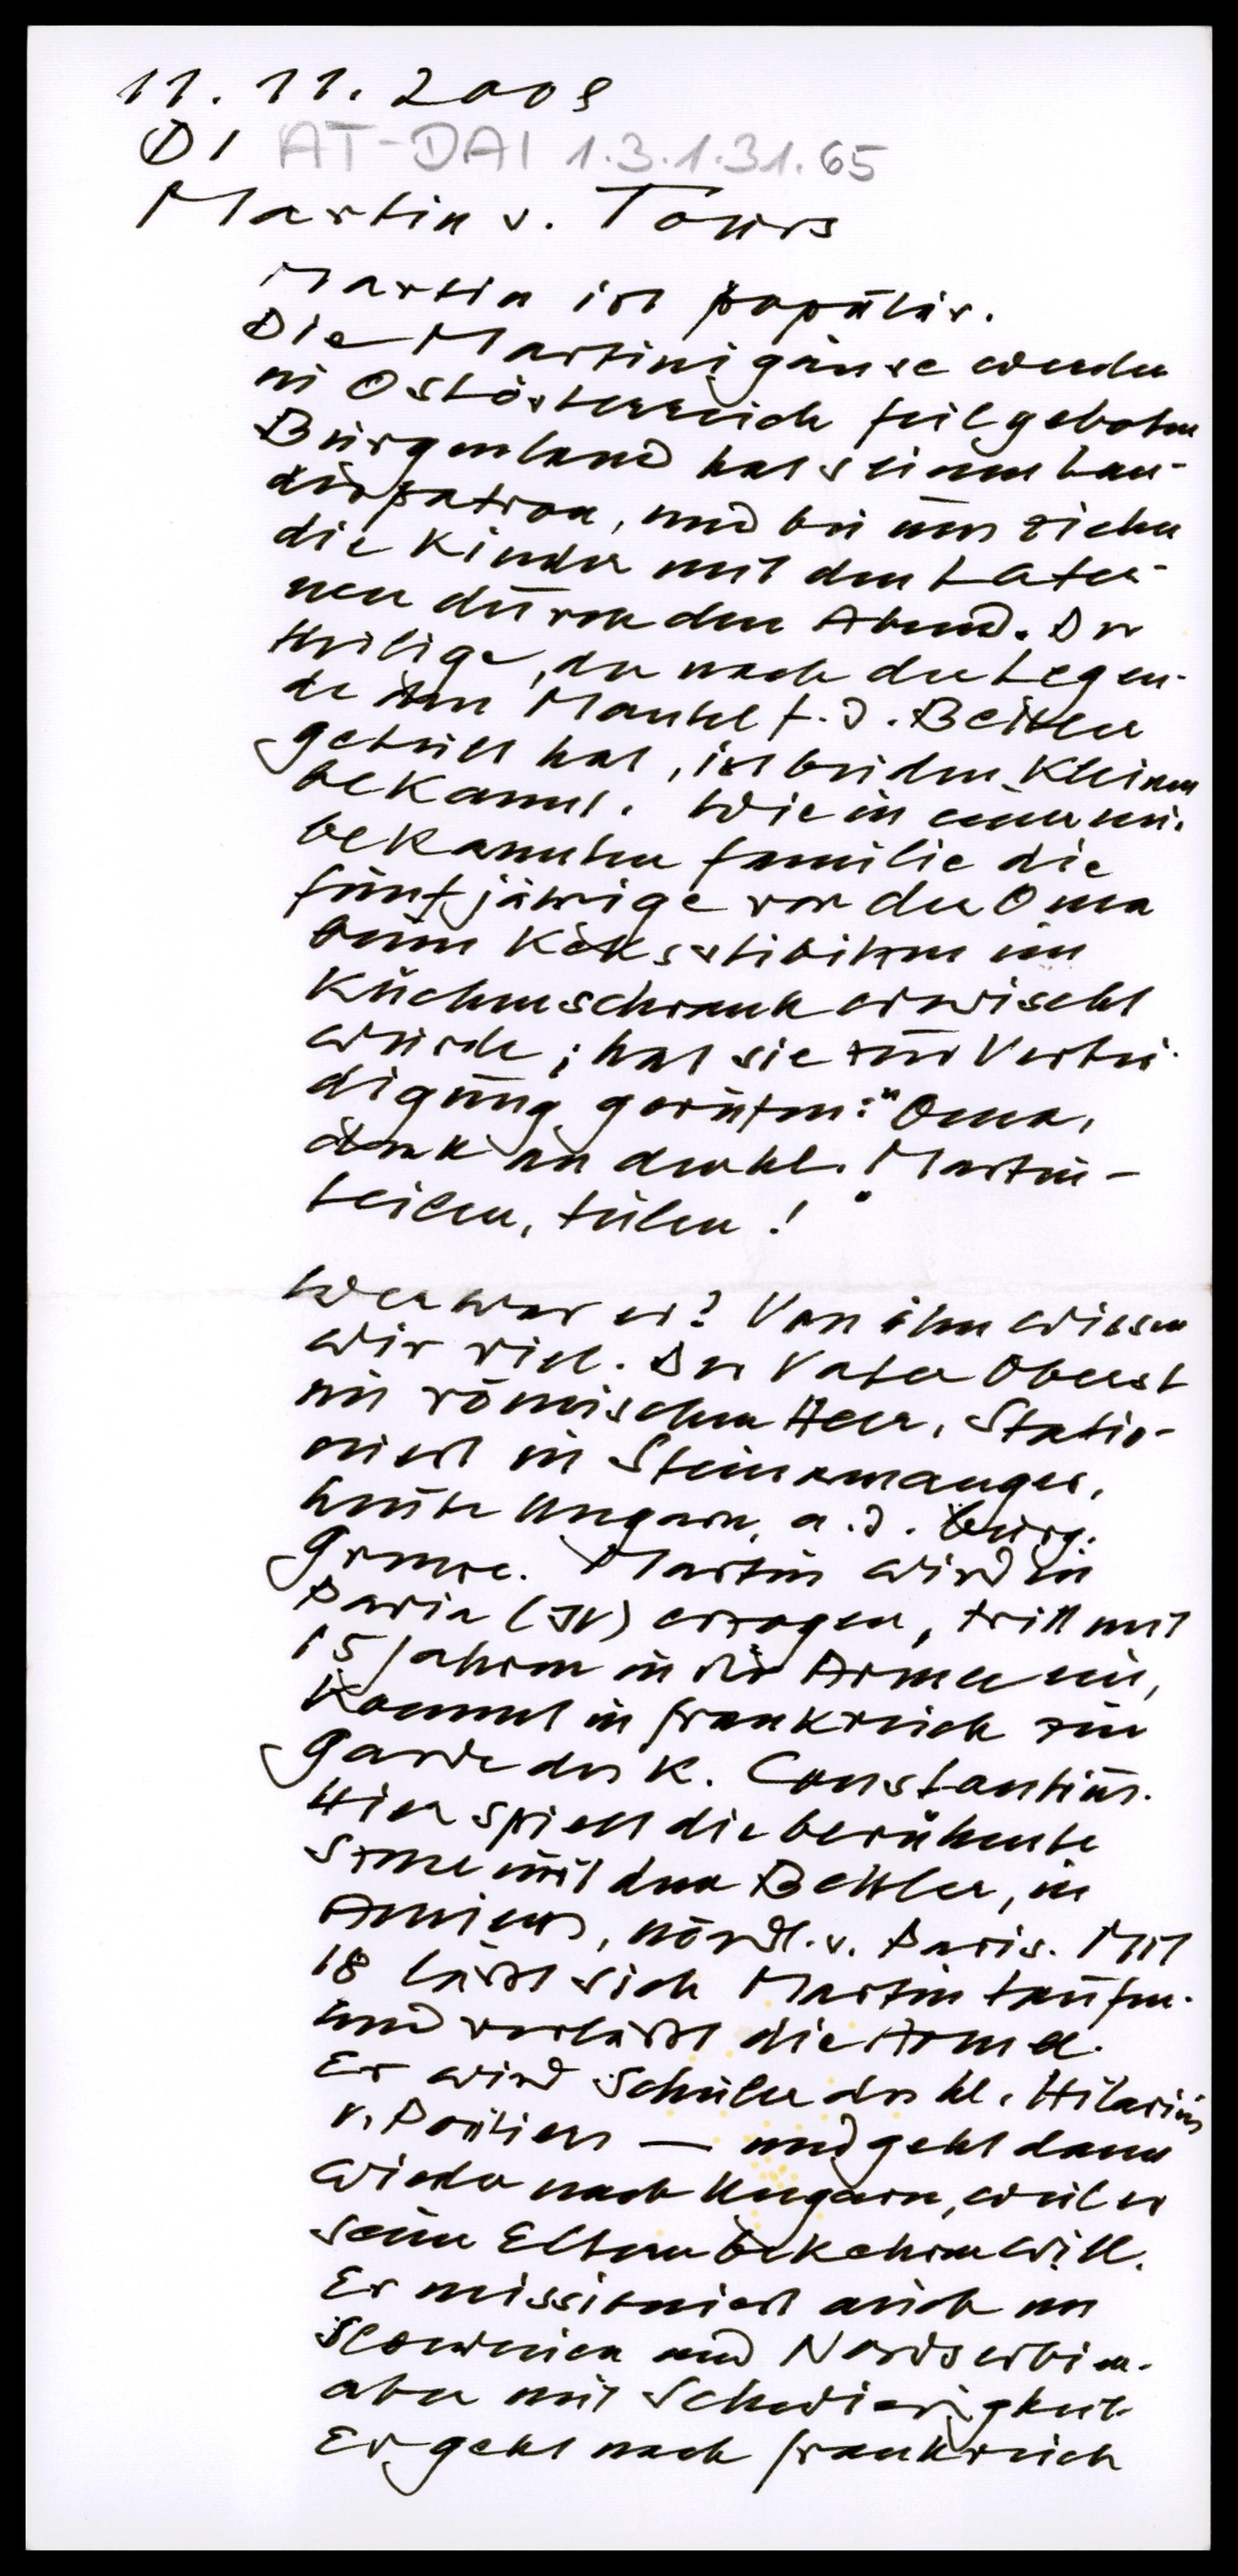 11. 11. 2008
DI AT-DAI 1.3.1.31.65
Martin v. Tours
Martin ist populär.
Die Martinigänse werden
in Ostösterreich feilgeboten
Burgenland hat s einen Lan-
despatron, und bei uns ziehen
die Kinder mit den Later-
nen durch den Abend. Der
Heilige, der nach der Legen-
de den Mantel f. d. Bettler
geteilt hat, ist bei den Kleinen
bekannt. Wie in einer mir
bekannten Familie die
fünfjährige von der Oma
beim Keksstibitzen im
Küchenschrank erwischt
wurde, hat sie zur Vertei-
digung gerufen: "Oma,
denk an den hl. Martin -
teilen, teilen!"
Wer war er? Von ihm wissen
wir viel. Der Vater Oberst
im römischen Heer, statio-
niert in Steinamanger,
heute Ungarn, a. d. burg.
Grenze. Martin wird in
Pavia (IV) erzogen, tritt mit
15 Jahren in die Armee ein,
kommt in Frankreich zur
Garde des K. Constantius.
Hier spielt die berühmte
Szene mit dem Bettler, in
Amiens, nördl. v. Paris. Mit
18 läßt sich Martin taufen.
und verläßt die Armee.
Er wird Schüler des hl. Hilarius
v. Poitiers — und geht dann
wieder nach Ungarn, weil er
seine Eltern bekehren will.
Er missioniert auch in
Slowenien und Nordserbien.
aber mit Schwierigkeit
Er geht nach Frankreich